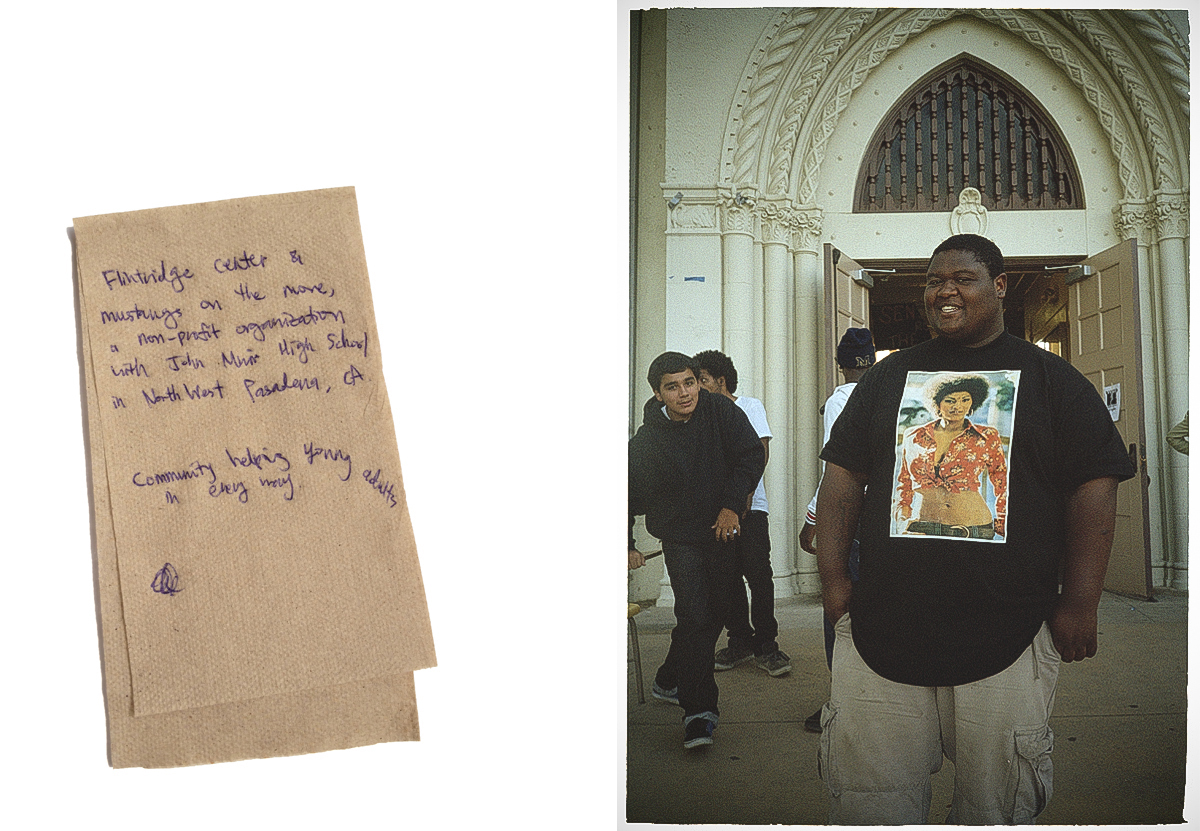 Flintridge center &
mustangs on the move,
a non-profit organization
with John Muir High School
in North West Pasadena, CA.
Community helping young adults
in every way.
M